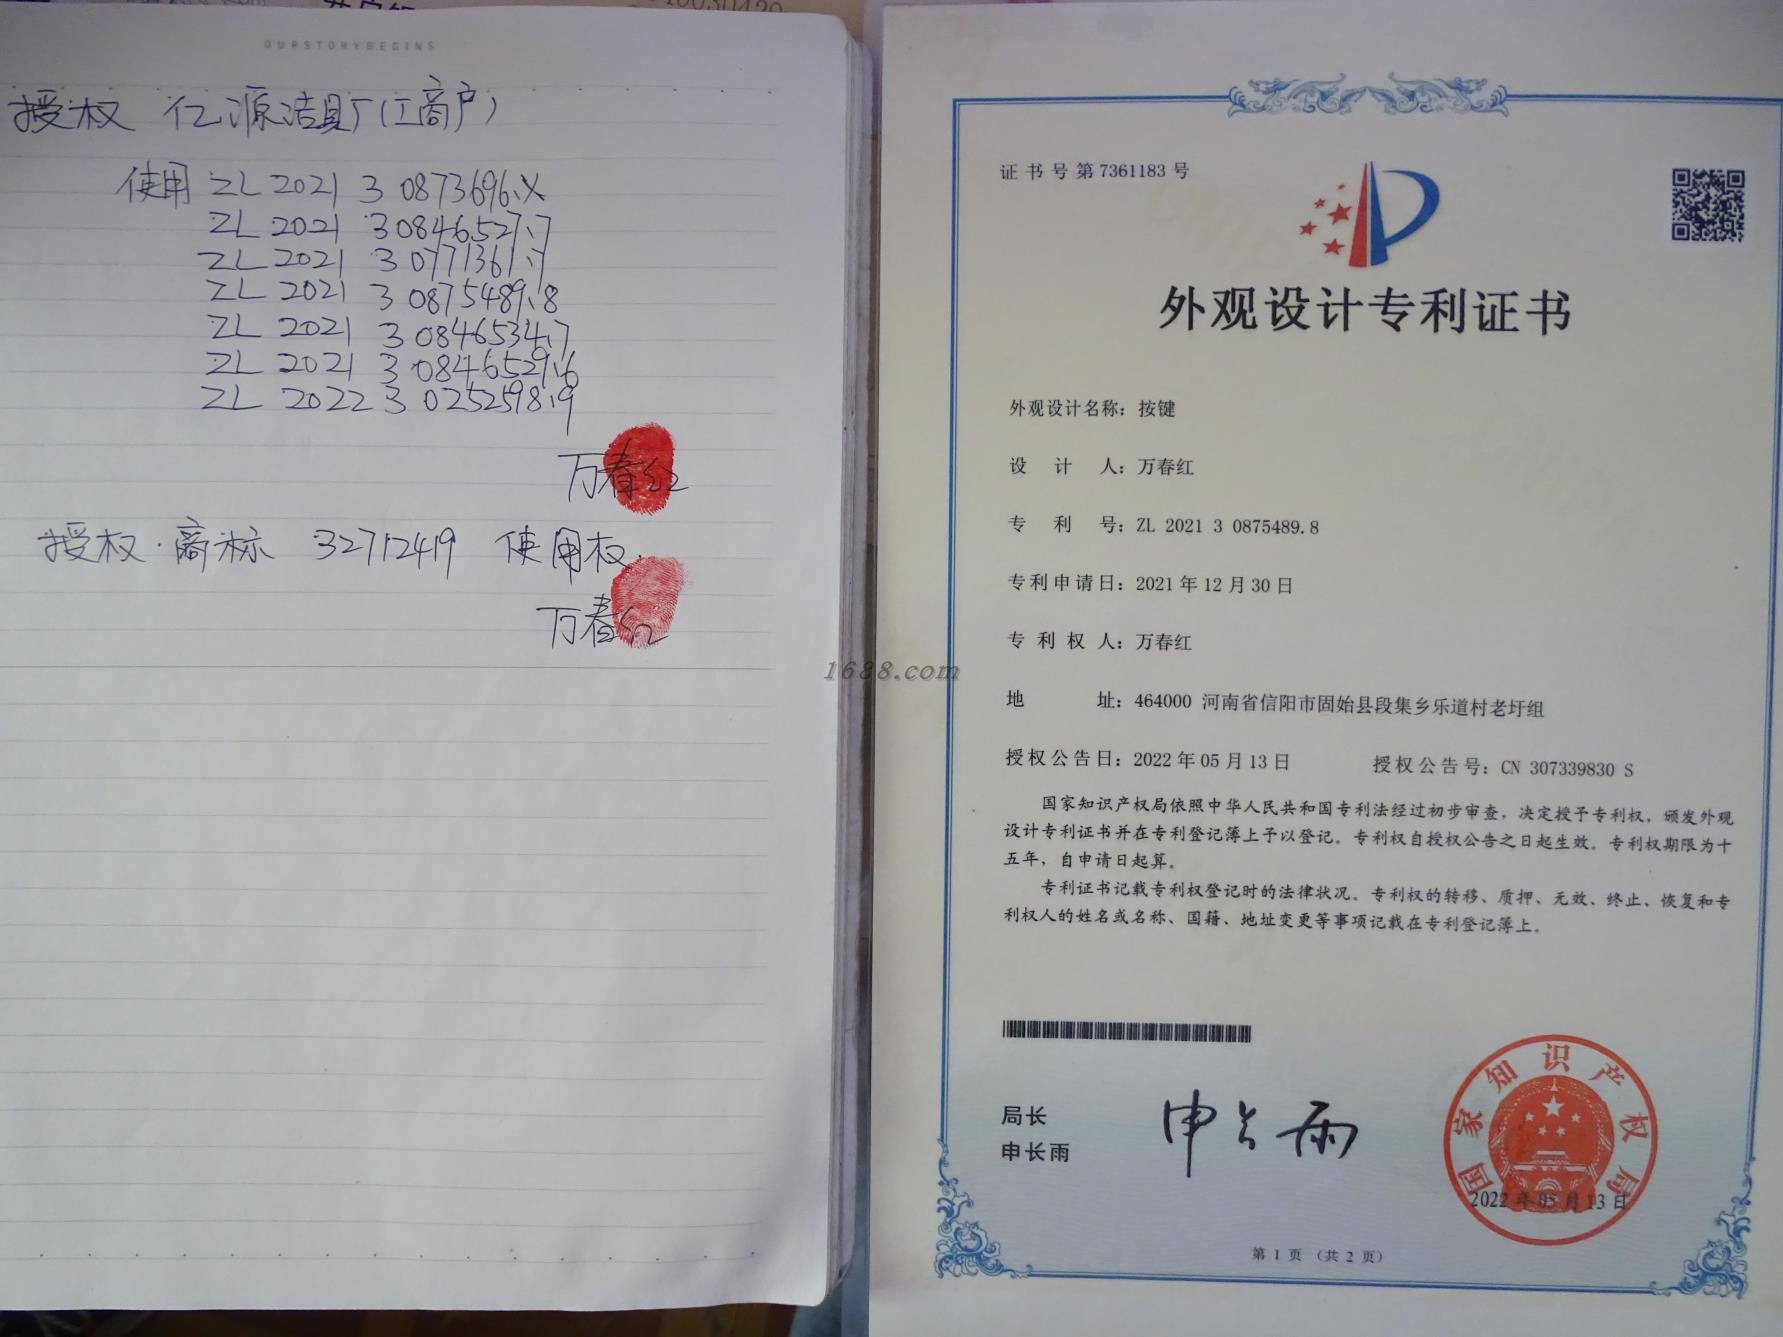 OURSTORYBEGINS
授权 亿源洁具厂(工商户)
使用 ZL 2021 3 0873696.X
ZL 2021 3 0846527.7
ZL 2021 3 0771361.7
ZL 2021 3 0875489.8
ZL 2021 3 0846534.7
ZL 2021 3 0846529.6
ZL 2022 3 0252598.9
万春红
授权.商标 32712419 使用权.
万春红
1688.com
证书号第7361183号
外观设计专利证书
外观设计名称：按键
设计人：万春红
专利号：ZL 2021 3 0875489.8
专利申请日：2021年12月30日
专利权人：万春红
地址：464000 河南省信阳市固始县段集乡乐道村老圩组
授权公告日：2022年05月13日 授权公告号：CN 307339830 S
国家知识产权局依照中华人民共和国专利法经过初步审查，决定授予专利权，颁发外观
设计专利证书并在专利登记簿上予以登记。专利权自授权公告之日起生效。专利权期限为十
五年，自申请日起算。
专利证书记载专利权登记时的法律状况。专利权的转移、质押、无效、终止、恢复和专
利权人的姓名或名称、国籍、地址变更等事项记载在专利登记簿上。
局长
申长雨
申长雨
国家知识产权局
2022年05月13日
第1页（共2页）